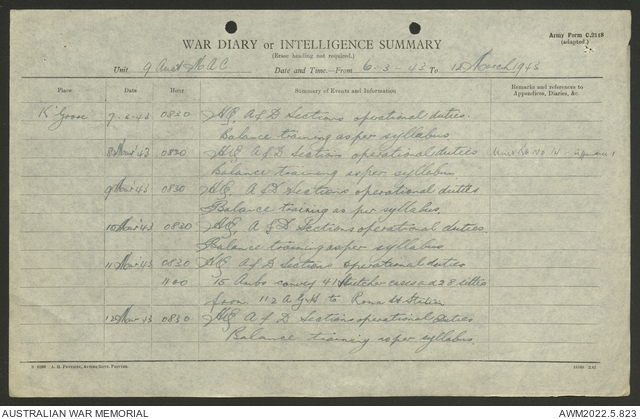 Army Form C.2118
(adapted.)
WAR DIARY or INTELLIGENCE SUMMARY
(Erase heading not required).
Unit 9 Aust M.A.C Date and Time.—From 6-3-43 To 12 March 1943
Place Date Hour Summary of Events and Information Remarks and references to
Appendices, Diaries, &c.
7-3-43 0830 HQ A & D Sections operational duties.
Balance training as per syllabus
8 Mar 43 0830 HQ A & D Sections operational duties
Balance training as per syllabus
9 Mar 43 0830 HQ A & D Sections operational duties
Balance training as per syllabus.
10 Mar 43 0830 HQ A & D Sections operational duties.
Balance training as per syllabus
11 Mar 43 0830 HQ A & D Sections operational duties
1100 15 Ambs convey 41 stretcher cases and 28 sitters
from 112 A.G.H to Roma St Station
12 Mar 43 0830 HQ A & D Sections operational duties
Balance training as per syllabus.
AUSTRALIAN WAR MEMORIAL AWM2022.5.823